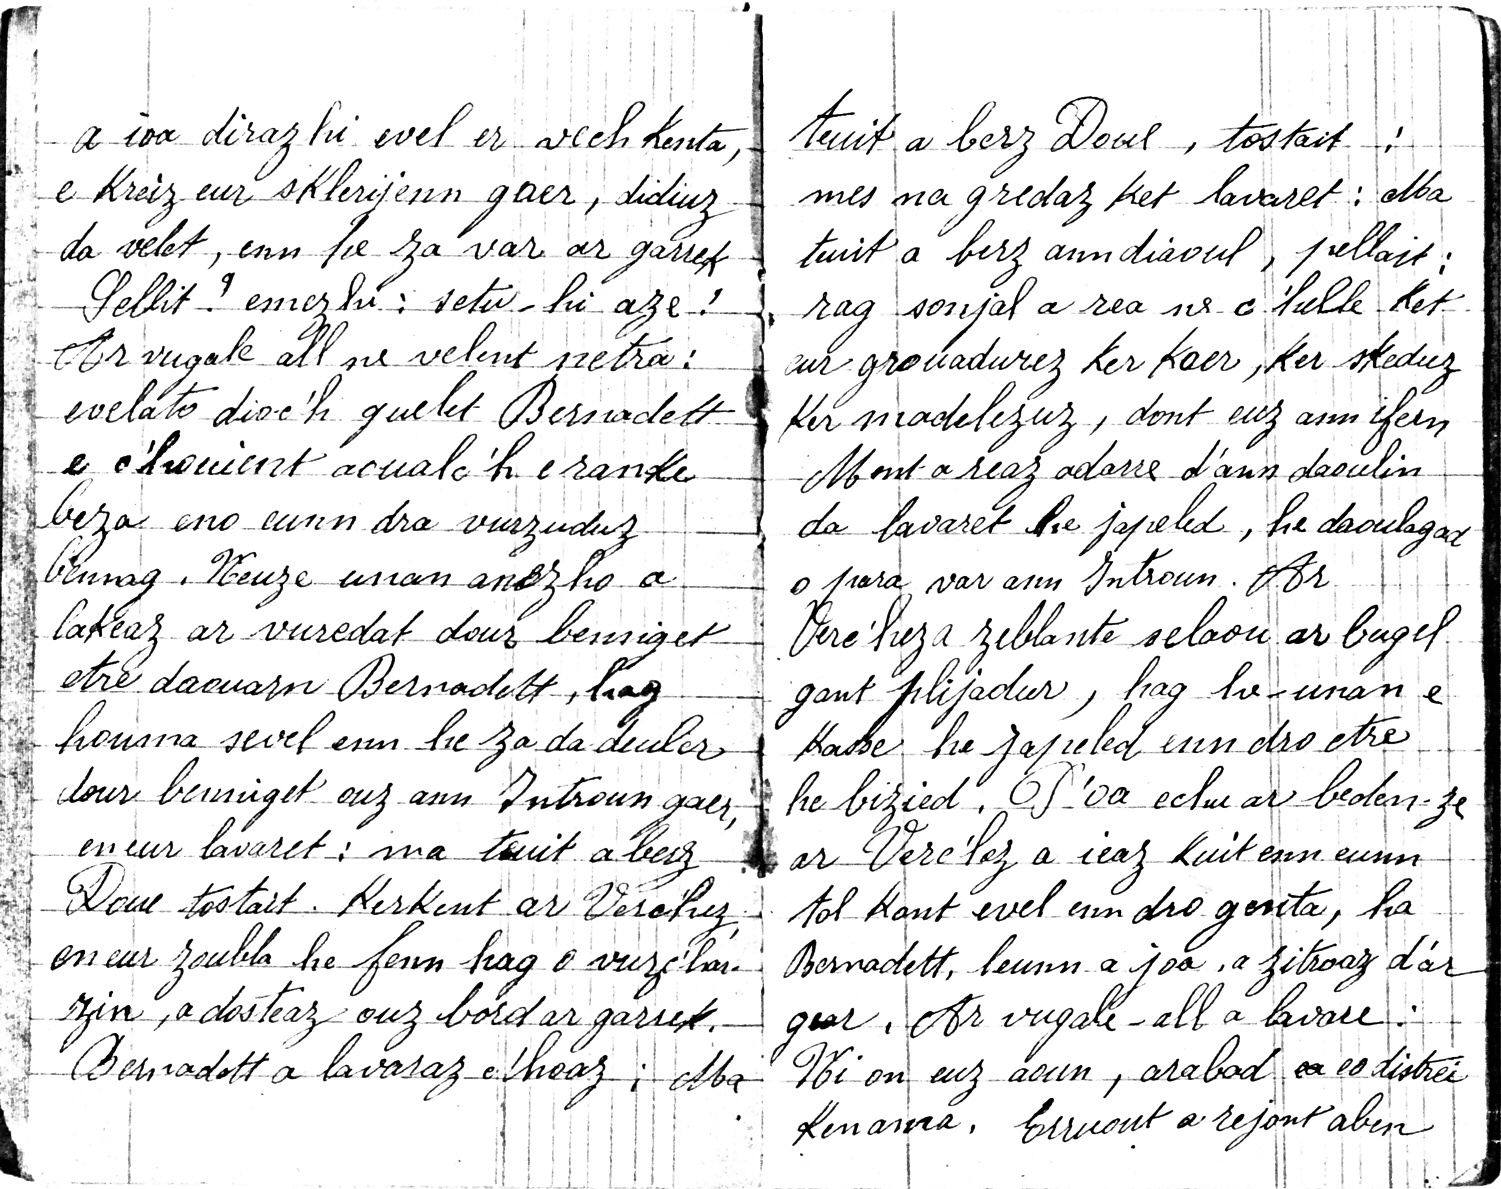 a ioa dirazhi evel er vech kenta,
e kreiz eur sklerijenn gaer, didiuz
da velet, enn he za var ar garrek
Sellit ! emezhi : setu-hi aze !
Ar vugale all ne velent netra :
evelato dioc'h guelet Bernadett
e c'houient acualc'h e ranke
beza eno eunn dra vurzuduz
bennag. Neuze unan anezho a
lakeaz ar vuredat dour benniget
etre daouarn Bernadett, hag
houma sevel enn he za da deuler
dour benniget ouz ann Introun gaer,
en eur lavaret : ma teuit a berz
Doue tostait. Kerkent ar Verc'hez,
en eur zoubla he fenn hag o vuzc'hoar-
zin, a dosteaz ouz bord ar garrek.
Bernadett a lavaraz c'hoaz : Ma
teuit a berz Doue, tostait !
mes na gredaz ket lavaret : Ma
teuit a berz ann diaoul, pellait ;
rag sonjal a rea ne c'helle ket
eur grouadurez ker kaer, ker skeduz
ker madelezuz, dont euz ann ifern
Mont a reaz adarre d'ann daoulin
da lavaret he japeled, he daoulagad
o para var ann Introun. Ar
Verc'hez a zeblante selaou ar bugel
gant plijadur, hag he-unan e
kasse he japeled enn dro etre
he bizied. P'oa echu ar beden-ze
ar Verc'hez a ieaz kuit enn eunn
tol kont evel enn dro genta, ha
Bernadett, leunn a joa, a zitroaz d'ar
gear. Ar vugale-all a lavare :
Ni on euz aoun, arabad eo distrei
kenama. Erruout a rejont aben